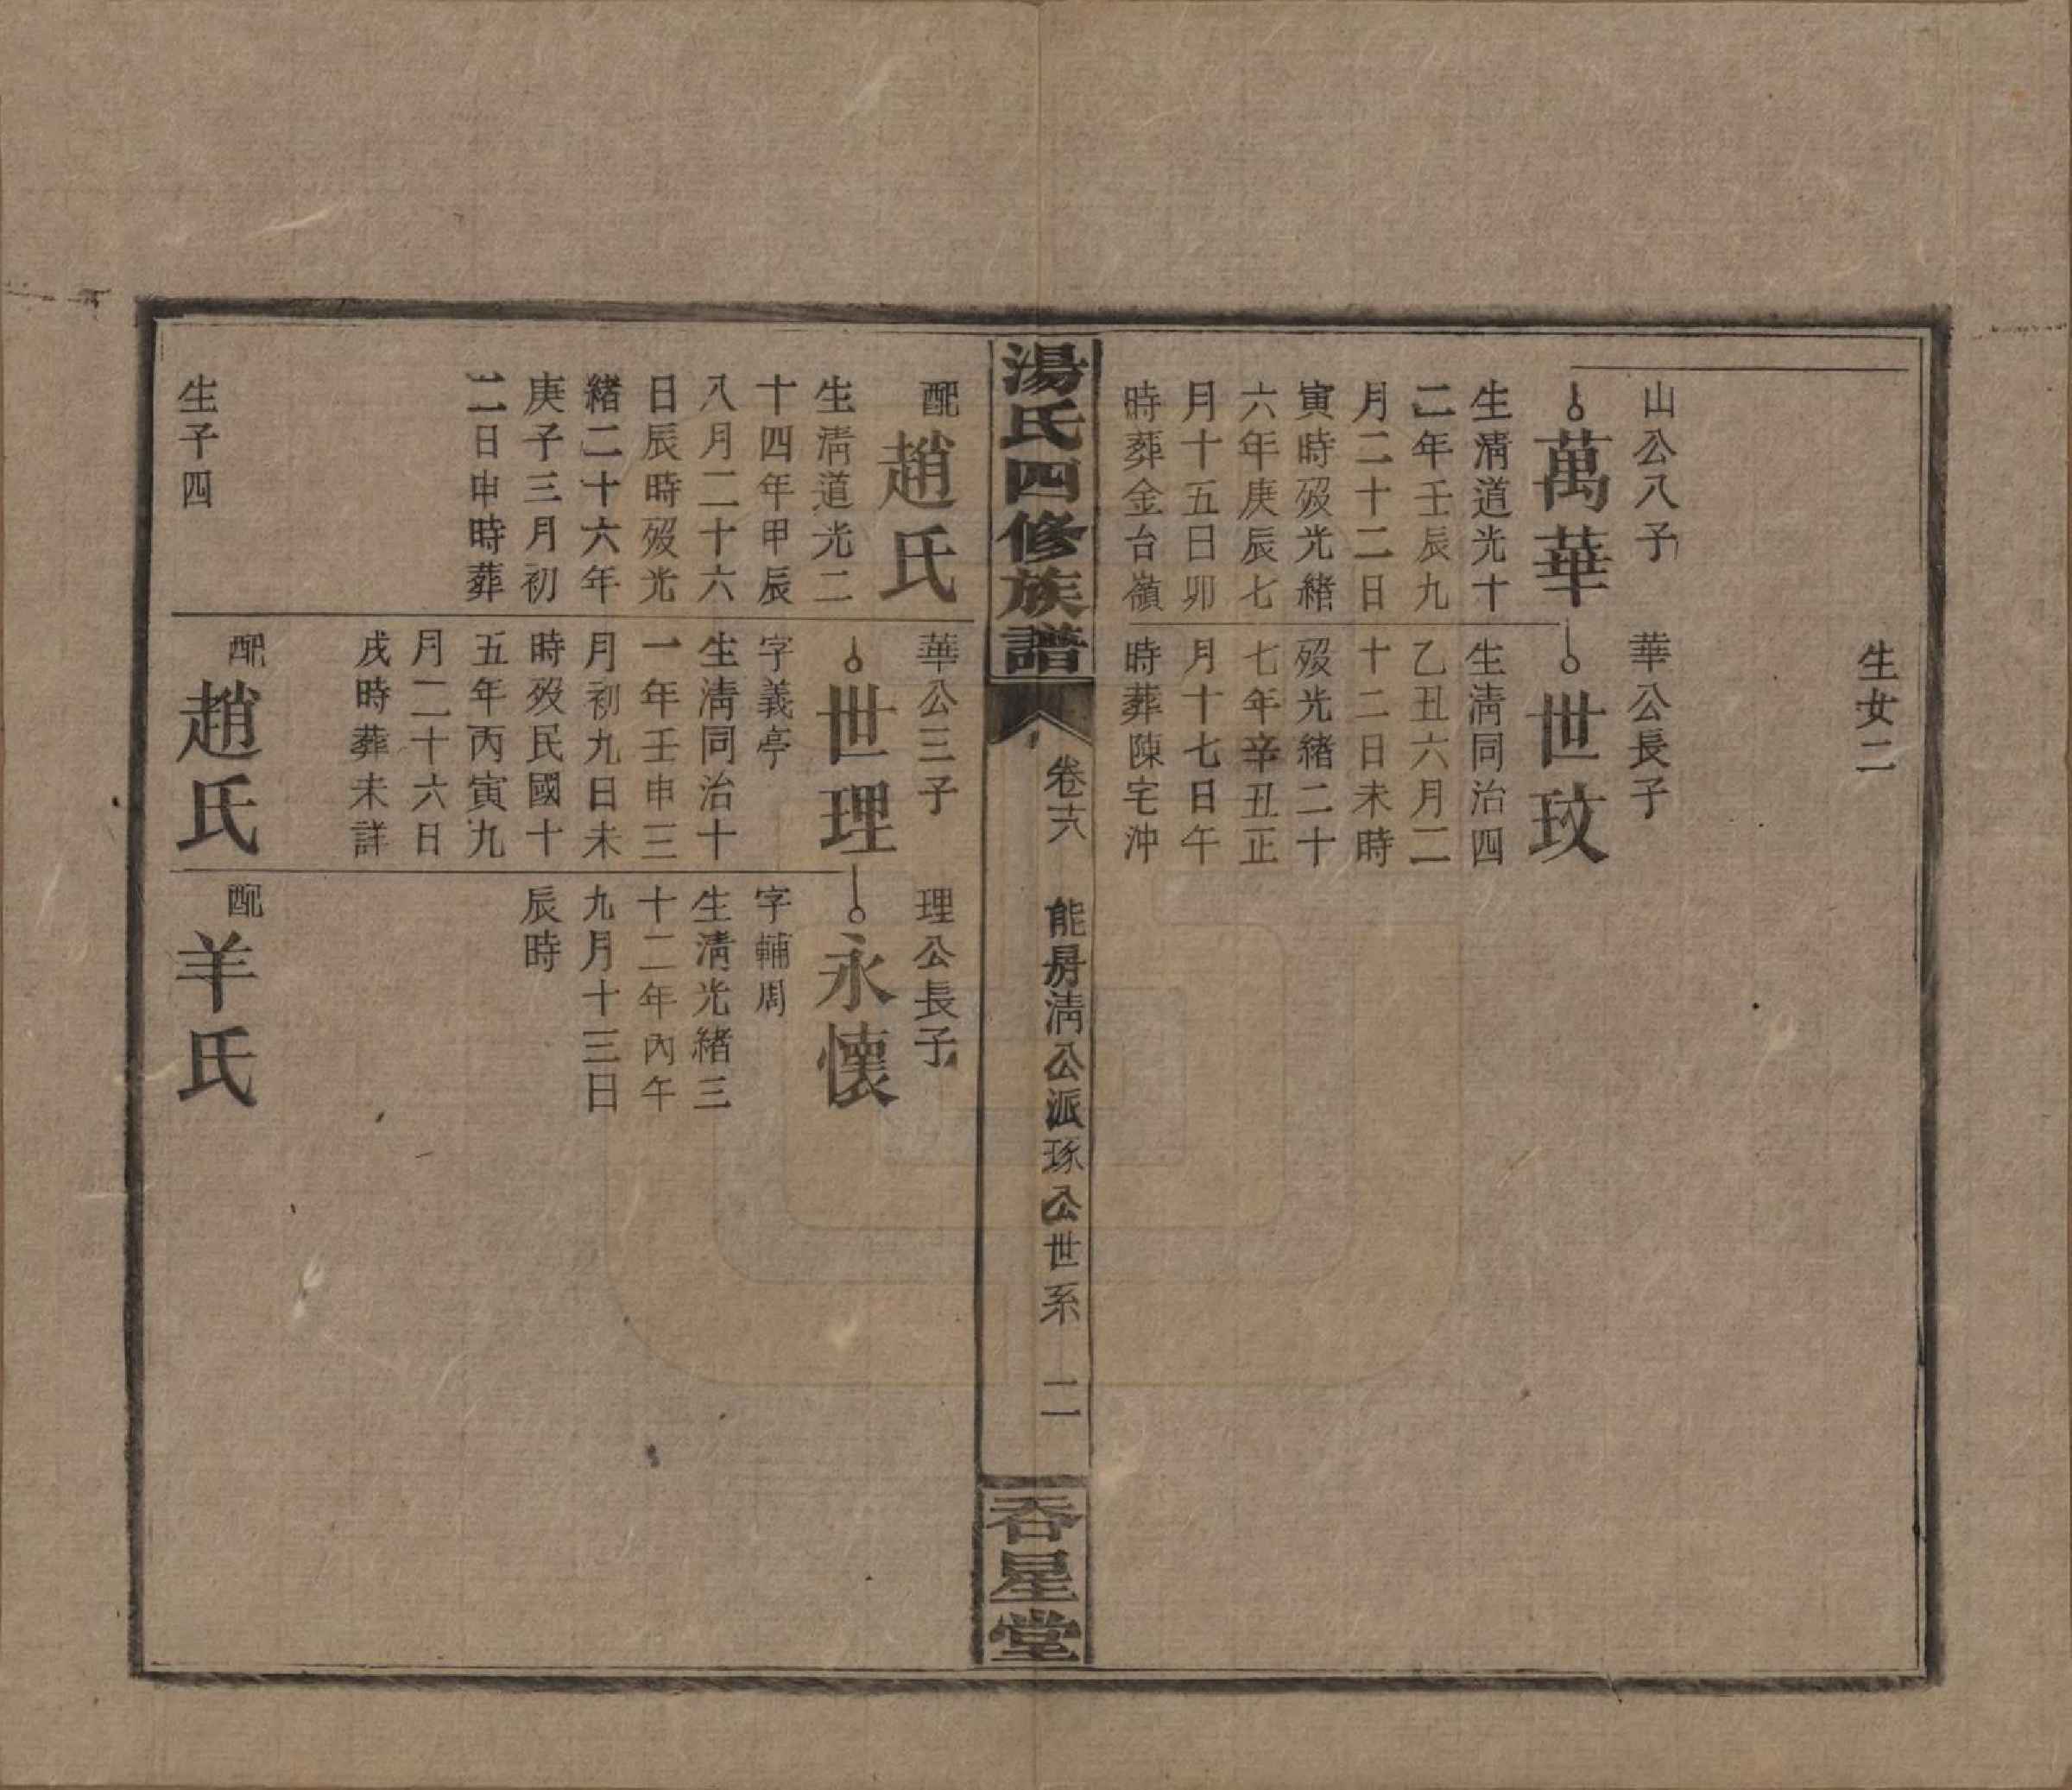 生女二
山公八子
萬華
生淸道光十
二年壬辰九
月二十二日
寅時歿光緒
六年庚辰七
月十五日卯
時葬金台嶺
華公長子
世玟
生淸同治四
乙丑六月二
十二日未時
歿光緒二十
七年辛丑正
月十七日午
時葬陳宅沖
湯氏四修族譜
卷六 能房淸公派琢公世系 二
吞星堂
配
趙氏
生淸道光二
十四年甲辰
八月二十六
日辰時歿光
緒二十六年
庚子三月初
二日申時葬
生子四
華公三子
世理
字義亭
生淸同治十
一年壬申三
月初九日未
時歿民國十
五年丙寅九
月二十六日
戌時葬未詳
配
趙氏
理公長子
永懷
字輔周
生淸光緒三
十二年內午
九月十三日
辰時
配
羊氏